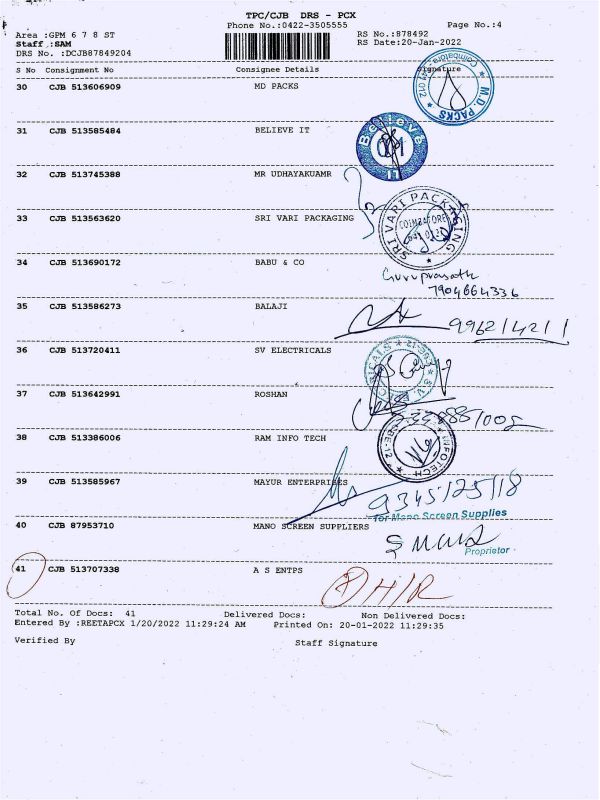 TPC/CJB DRS - PCX
Phone No.:0422-3505555
Page No.:4
Area :GPM 6 7 8 ST
RS No.:878492
Staff :SAM
RS Date:20-Jan-2022
DRS No. :DCJB87849204
S No Consignment No Consignee Details Signature
30 CJB 513606909 MD PACKS
M.D. PACKS
31 CJB 513585484 BELIEVE IT
Believe
32 CJB 513745388 MR UDHAYAKUAMR
33 CJB 513563620 SRI VARI PACKAGING
SRI VARI PACKAGING
COIMBATORE
34 CJB 513690172 BABU & CO
Guruprasath
7904664336
35 CJB 513586273 BALAJI
36 CJB 513720411 SV ELECTRICALS
37 CJB 513642991 ROSHAN
38 CJB 513386006 RAM INFO TECH
INFOTECH
39 CJB 513585967 MAYUR ENTERPRISES
for Mano Screen Supplies
40 CJB 87953710 MANO SCREEN SUPPLIERS
Proprietor
41 CJB 513707338 A S ENTPS
H/R
Total No. Of Docs: 41 Delivered Docs: Non Delivered Docs:
Entered By :REETAPCX 1/20/2022 11:29:24 AM Printed On: 20-01-2022 11:29:35
Verified By Staff Signature